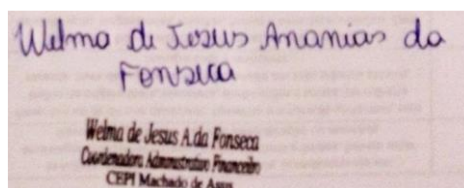 Welma de Jesus Ananias da
Fonseca
Welma de Jesus A. da Fonseca
Coordenadora Administrativo Financeiro
CEPI Machado de Assis